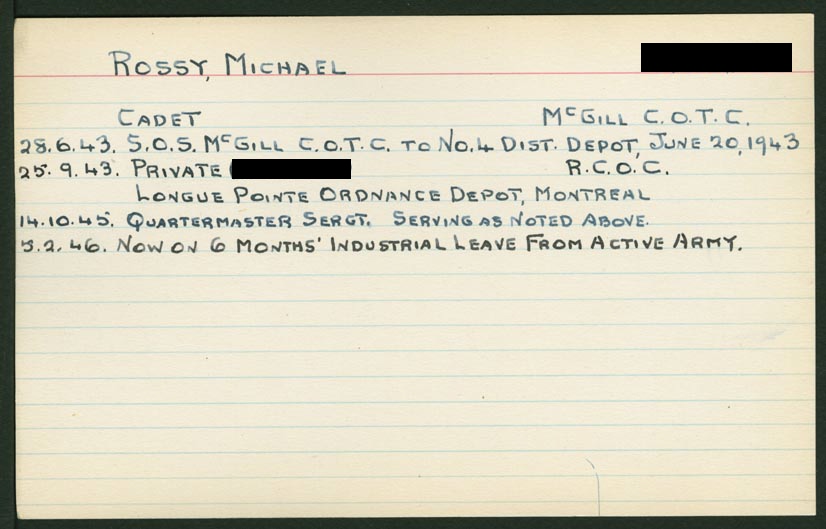 ROSSY, MICHAEL
CADET McGILL C.O.T.C.
28.6.43. S.O.S. McGILL C.O.T.C. TO No.4 DIST. DEPOT, JUNE 20, 1943
25.9.43. PRIVATE ( R.C.O.C.
LONGUE POINTE ORDNANCE DEPOT, MONTREAL
14.10.45. QUARTERMASTER SERGT. SERVING AS NOTED ABOVE.
5.2.46. NOW ON 6 MONTHS' INDUSTRIAL LEAVE FROM ACTIVE ARMY.